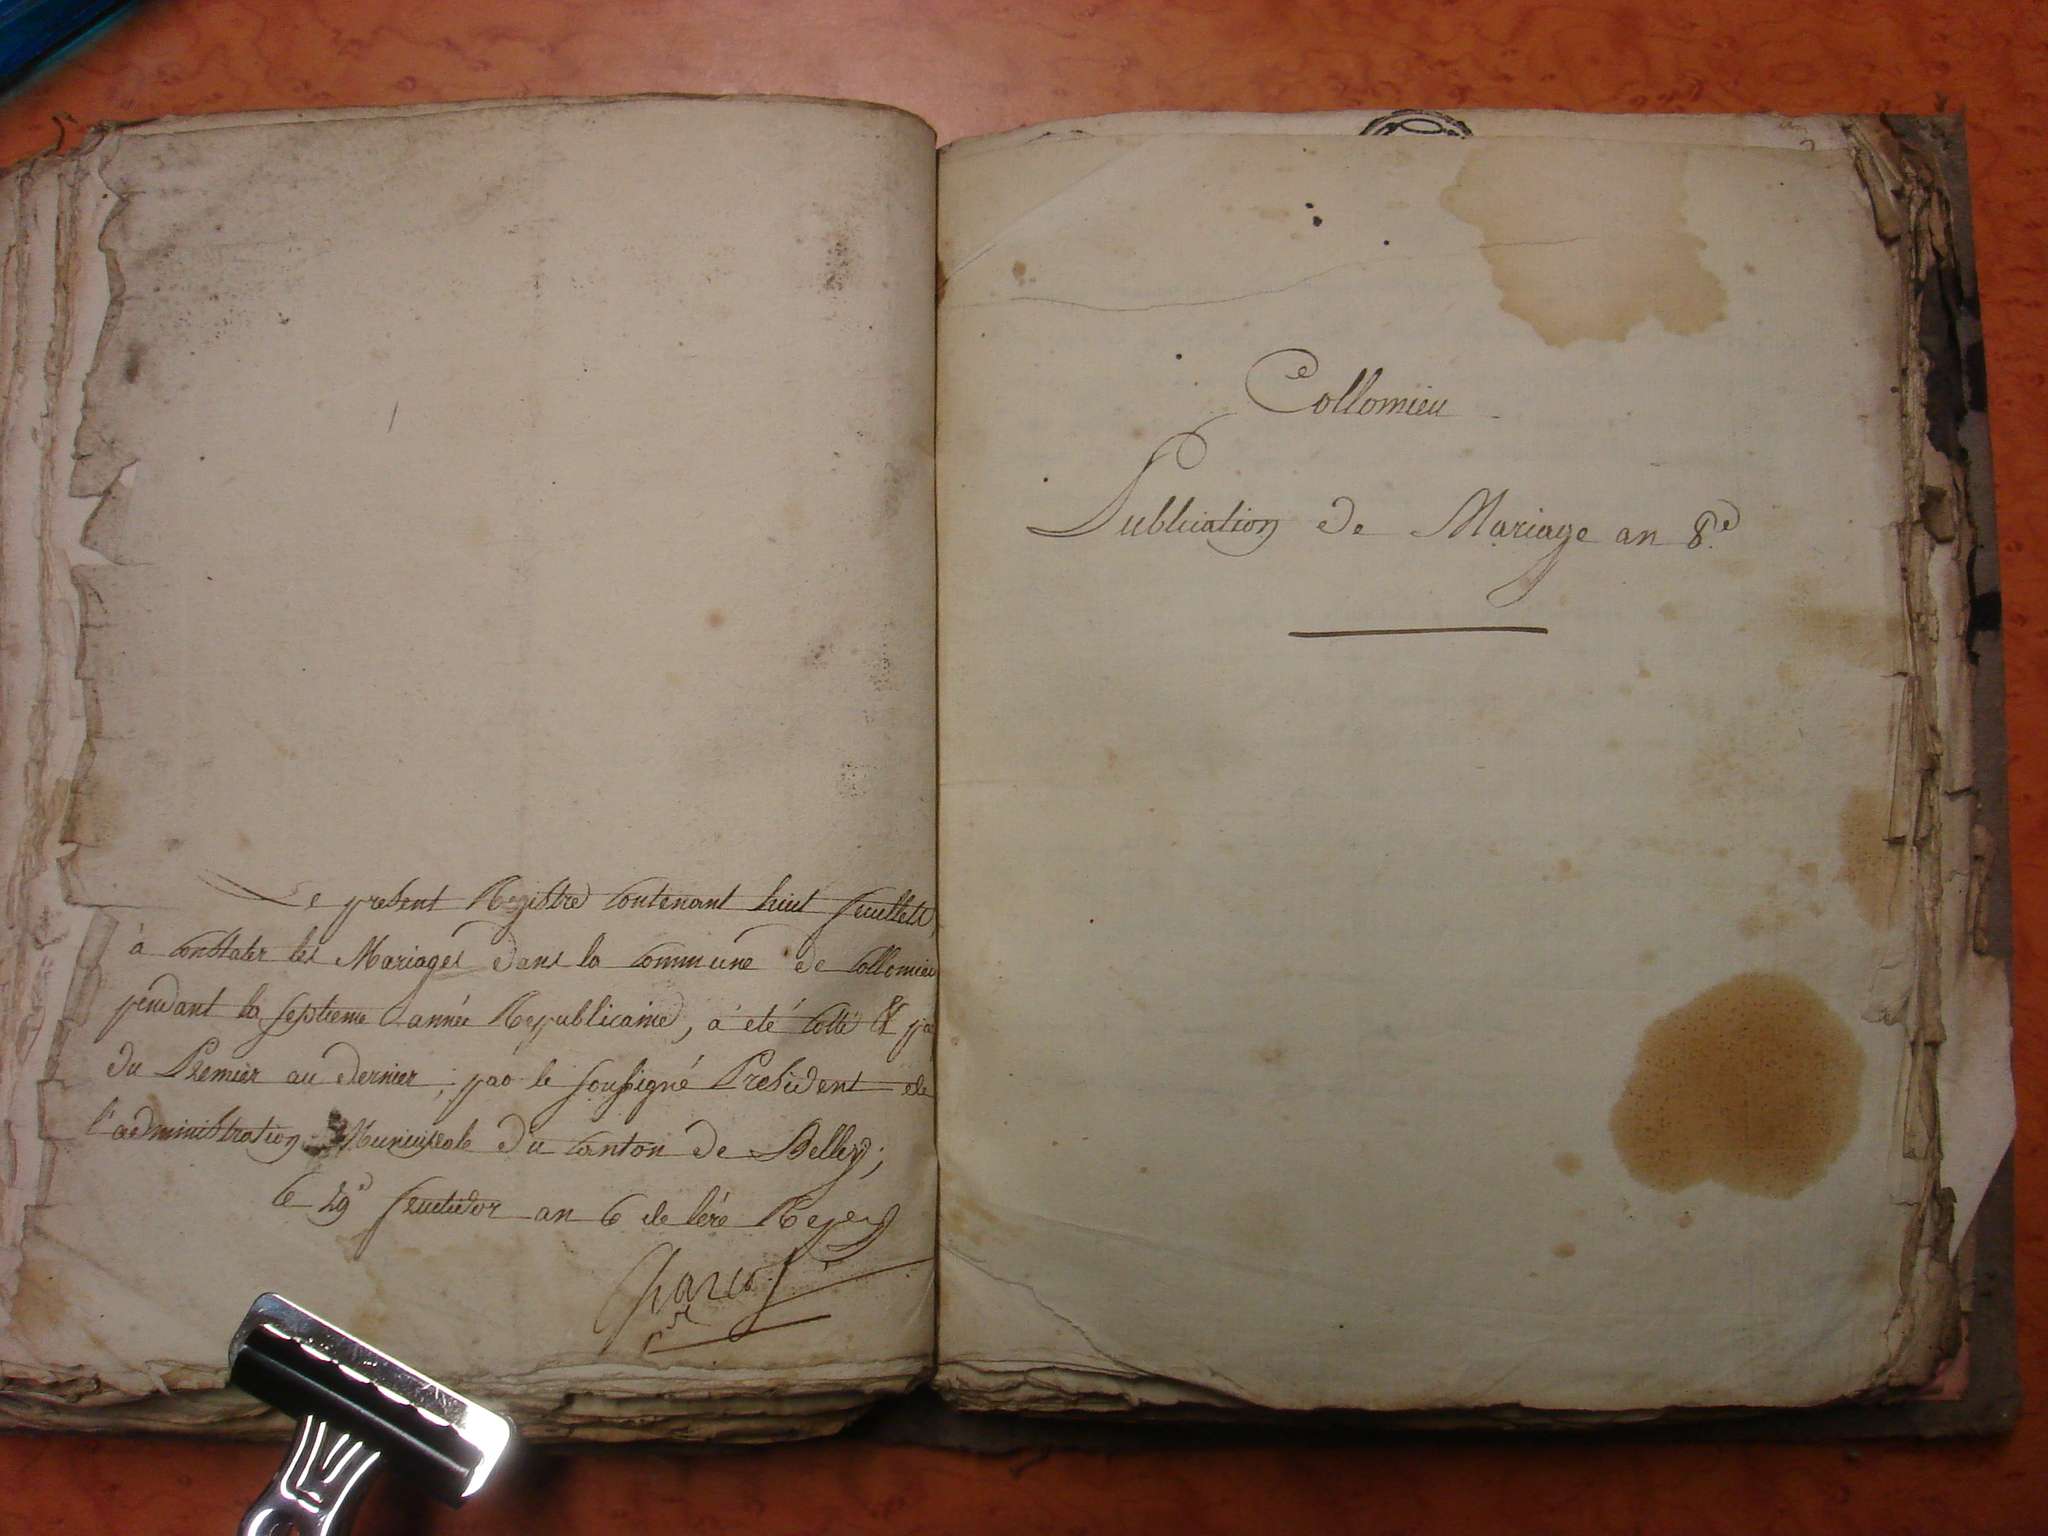 Le present Registre contenant huit feuillets
à constater les Mariages dans la commune de Collomieu
pendant la septieme année Republicaine, a été cotté &
du Premier au dernier, par le soussigné President de
l'administration Municipale du canton de Belley;
le 29e fructidor an 6 de l'ére Repe
Collomieu
Publication de Mariage an 8e.